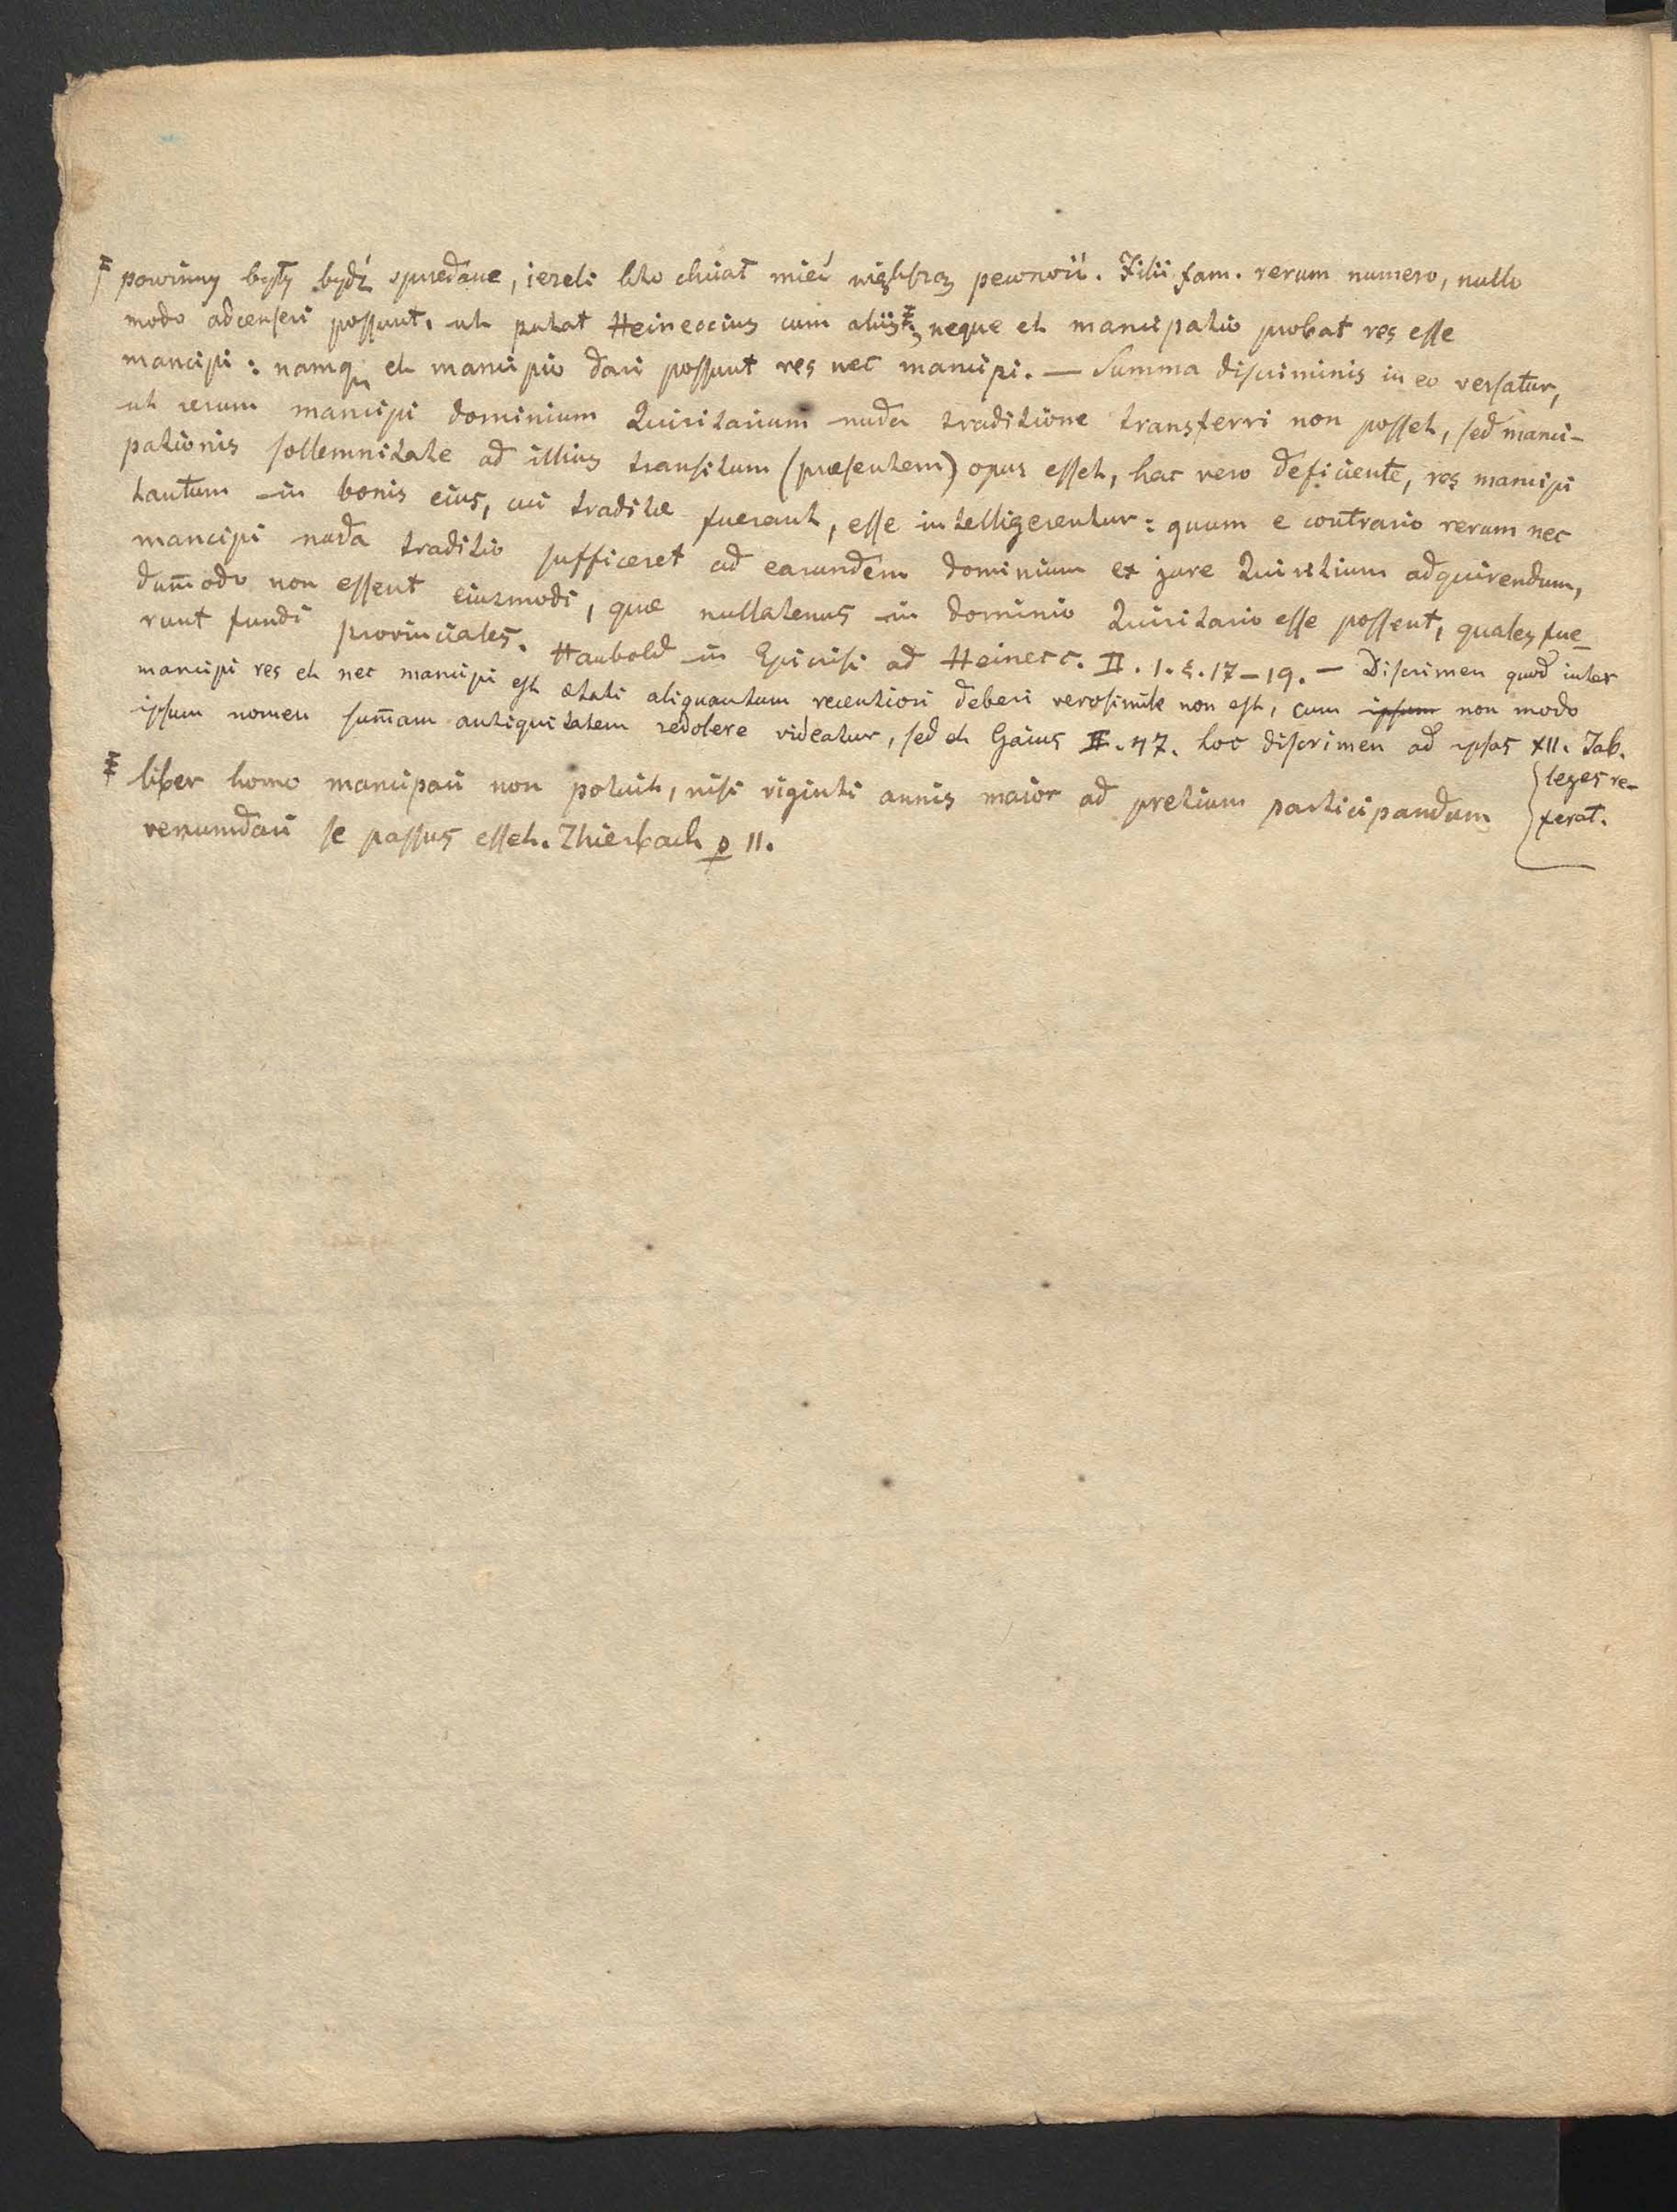 powinny były bydź sprzedane, ieżeli kto chciał mieć większą pewność. Filii fam. rerum numero, nullo
modo adcenseri possunt, ut putat Heineccius cum aliis ‡, neque et mancipatio probat res esse
mancipi: namq et mancipio dari possunt res nec mancipi. — Summa discriminis in eo versatur,
ut rerum mancipi dominium Quiritarium nuda traditione transferri non posset, sed manci-
pationis sollemnitate ad illius transitum (præsentem) opus esset, hac vero deficiente, res mancipi
tantum in bonis eius, cui traditæ fuerant, esse intelligerentur: quum e contrario rerum nec
mancipi nuda traditio sufficeret ad earundem dominium ex jure Quiritium adquirendum,
dum̄odo non essent eiusmodi, quæ nullatenus in dominio Quiritario esse possent, quales fue-
runt fundi provinciales. Haubold in Epicrisi ad Heinecc. II. 1. §. 17–19. — Discrimen quod inter
mancipi res et nec mancipi est ætati aliquantum recentiori deberi verosimile non est, cum ipsum non modo
ipsum nomen sum̄am antiquitatem redolere videatur, sed et Gaius II. 47. hoc discrimen ad ipsas XII. Tab.
leges re-
ferat.
‡ liber homo mancipari non potuit, nisi viginti annis maior ad pretium participandum
venumdari se passus esset. Zhierbach p 11.